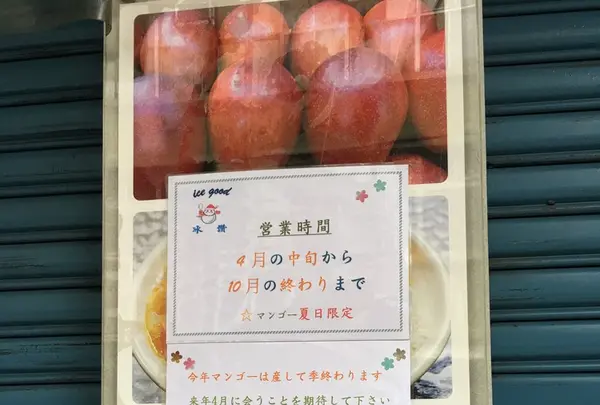 ice good
冰 讚
営業時間
4月の中旬から
10月の終わりまで
☆マンゴー夏日限定
今年マンゴーは産して季終わります
来年4月に会うことを期待して下さい